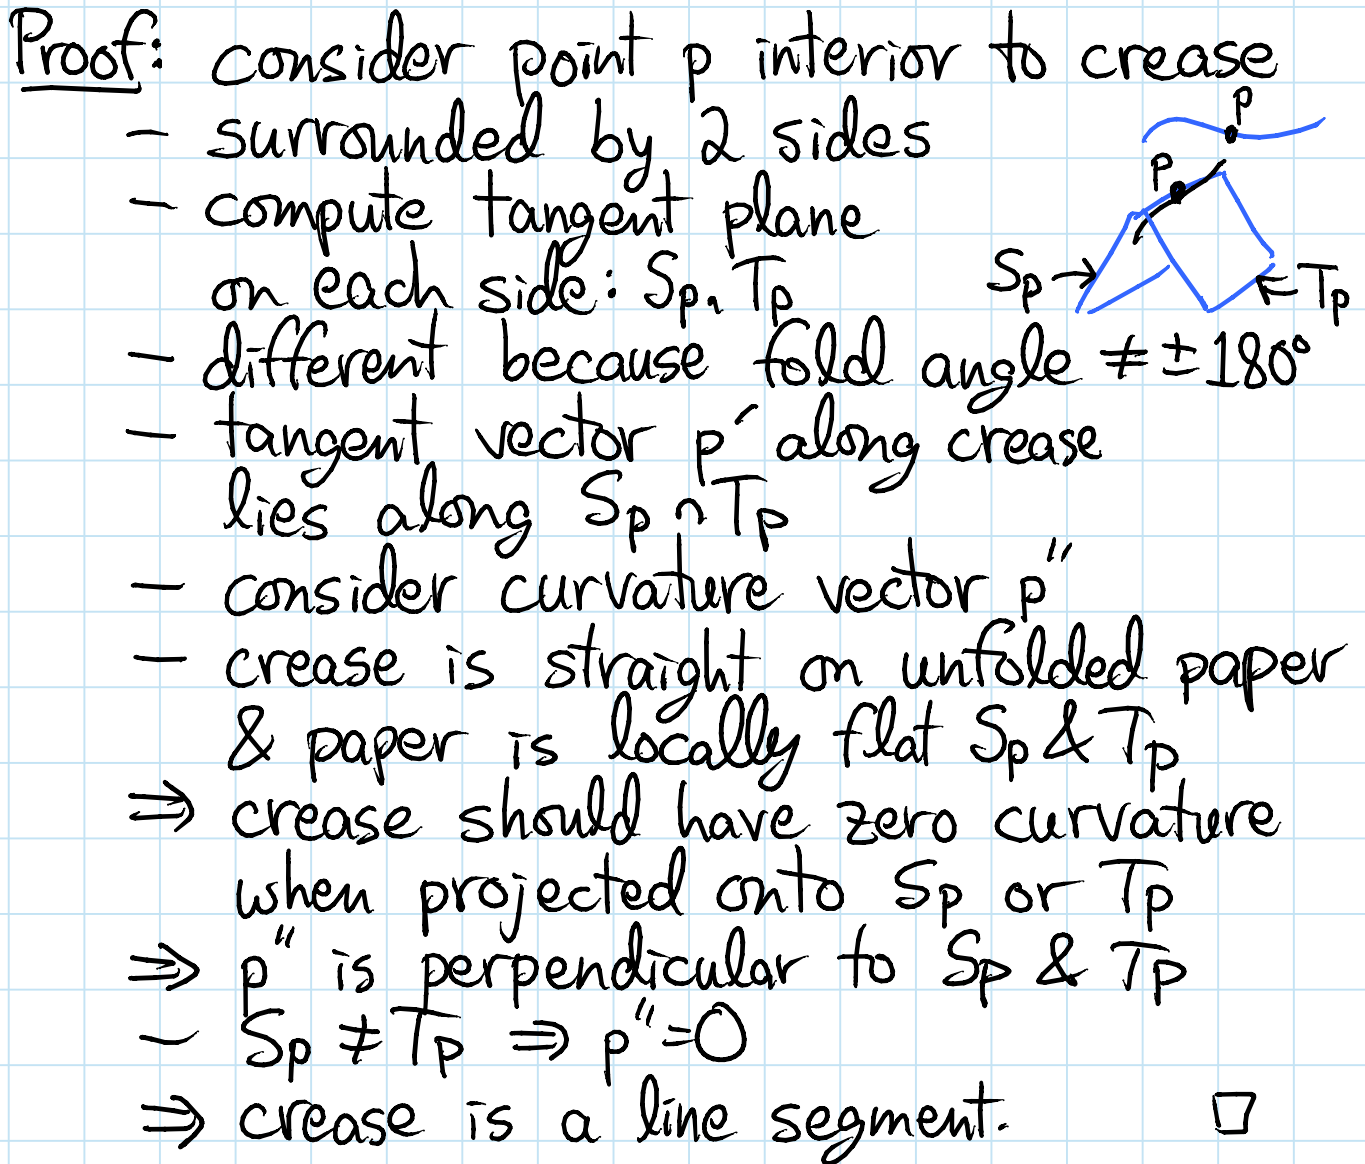 Proof: consider point p interior to crease
p
- surrounded by 2 sides
p
- compute tangent plane
on each side: Sp, Tp
Sp → ← Tp
- different because fold angle ≠ ±180°
- tangent vector p′ along crease
lies along Sp ∩ Tp
- consider curvature vector p″
- crease is straight on unfolded paper
& paper is locally flat Sp & Tp
⇒ crease should have zero curvature
when projected onto Sp or Tp
⇒ p″ is perpendicular to Sp & Tp
- Sp ≠ Tp ⇒ p″=0
⇒ crease is a line segment. □